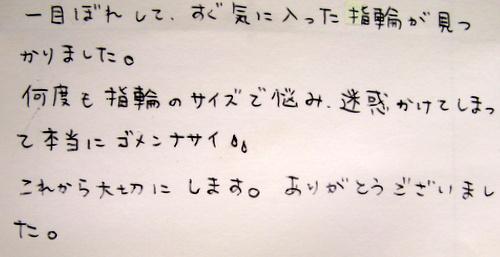 一目ぼれして、すぐ気に入った指輪が見つ
かりました。
何度も指輪のサイズで悩み、迷惑かけてしまっ
て本当にゴメンナサイ
これから大切にします。ありがとうございまし
た。